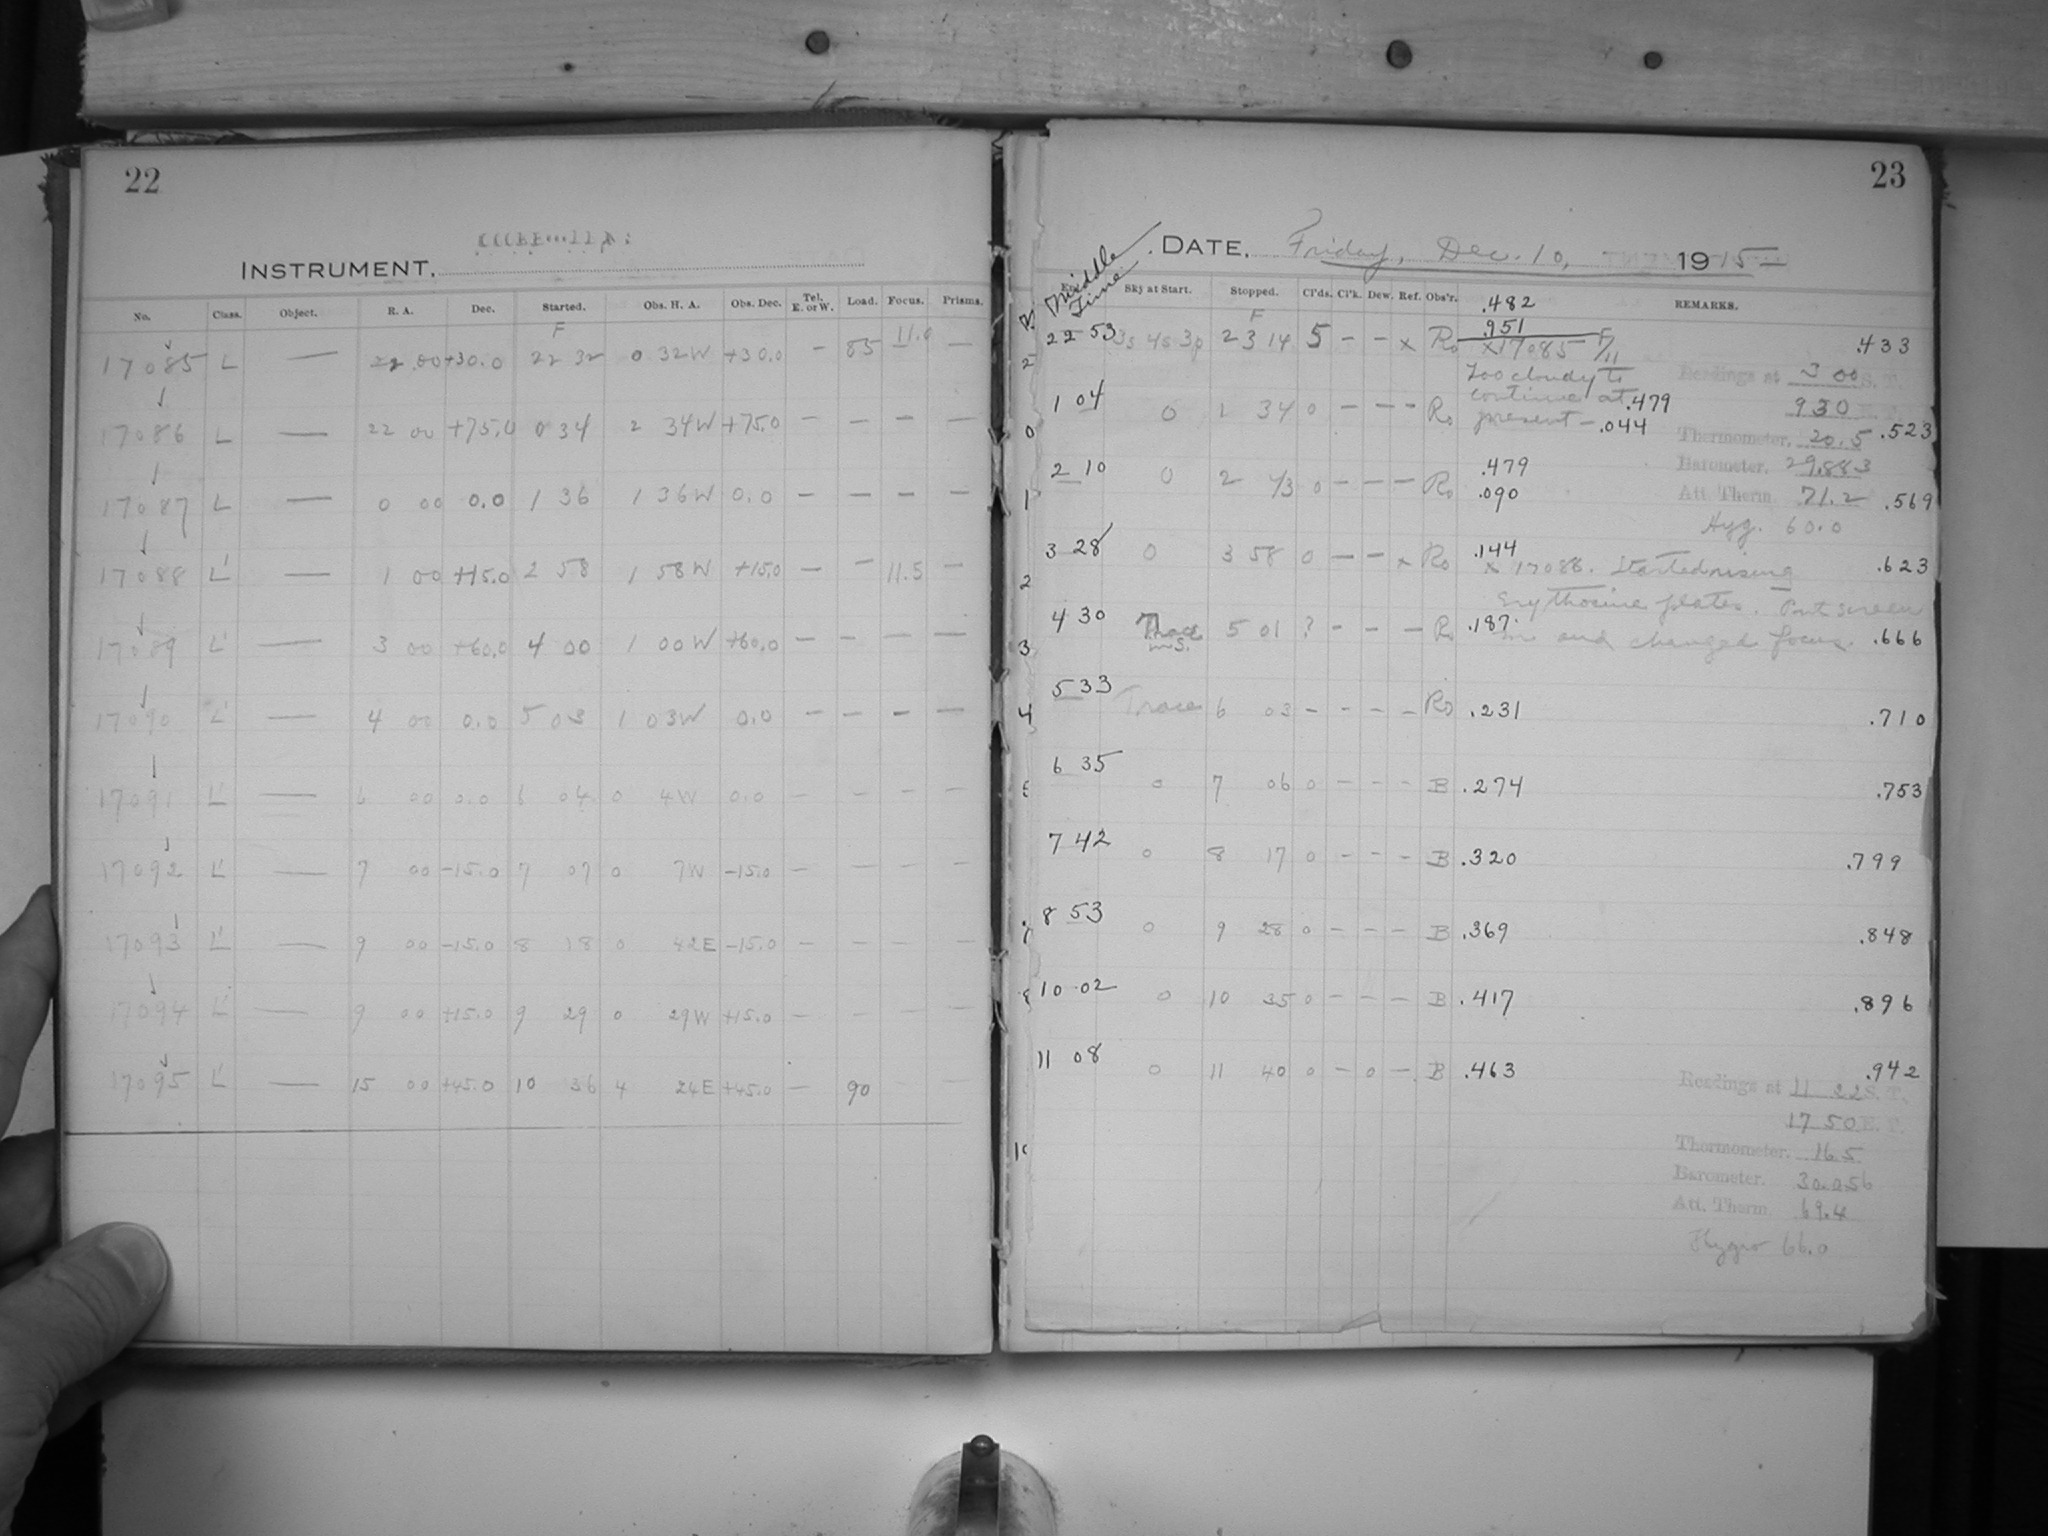 22
INSTRUMENT,
No. Class. Object. R. A. Dec. Started. Obs. H. A. Obs. Dec. Tel. E. or W. Load. Focus. Prisms.
F
17085 L — 22 00 +30.0 22 32 0 32W +30.0 — 85 11.0 —
17086 L — 22 00 +75.0 0 34 2 34W +75.0 — — — —
17087 L — 0 00 0.0 1 36 1 36W 0.0 — — — —
17088 L' — 1 00 +15.0 2 58 1 58W +15.0 — — 11.5 —
17089 L' — 3 00 +60.0 4 00 1 00W +60.0 — — — —
17090 L' — 4 00 0.0 5 03 1 03W 0.0 — — — —
17091 L' — 6 00 0.0 6 04 0 4W 0.0 — — — —
17092 L' — 7 00 -15.0 7 07 0 7W -15.0 — — — —
17093 L' — 9 00 -15.0 8 18 0 42E -15.0 — — — —
17094 L' — 9 00 +15.0 9 29 0 29W +15.0 — — — —
17095 L' — 15 00 +45.0 10 36 4 24E +45.0 — 90 —
23
DATE, Friday, Dec. 10, 1915
Middle Time
Sky at Start. Stopped. Cl'ds. Cl'k. Dew. Ref. Obs'r. REMARKS.
.482
F
.951
22 53 3s 4s 3p 23 14 5 — — x Ro x17085 F/11 .433
Too cloudy to
Readings at 3 00 S. T.
continue at .479
930
1 04 0 1 34 0 — — — Ro present — .044
Thermometer, 20.5 .523
Barometer. 29.883
2 10 0 2 43 0 — — — Ro .479
.090
Att. Therm 71.2 .569
Hyg. 60.0
3 28 0 3 58 0 — — x Ro .144 .623
x 17088. Started using
Erythosine plates. Put screen
4 30 Trace 5 01 ? — — — Ro .187 in and changed focus. .666
5 33 Trace 6 03 — — — — Ro .231 .710
6 35 0 7 06 0 — — — B .274 .753
7 42 0 8 17 0 — — — B .320 .799
8 53 0 9 28 0 — — — B .369 .848
10 02 0 10 35 0 — — — B .417 .896
11 08 0 11 40 0 — 0 — B .463 .942
Readings at 11 22 S. T.
17 50 E. T.
Thermometer. 16.5
Barometer. 30.056
Att. Therm 69.4
Hygro 66.0